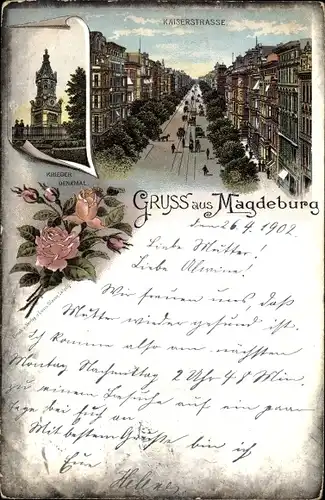 KAISERSTRASSE.
KRIEGER
DENKMAL
GRUSS aus Magdeburg
den 26.4.1902.
Liebe Mutter!
Liebe Alwine!
Wir freuen uns, daß
Mutter wieder gesund ist.
Ich komme also am nächsten
Montag Nachmittag 2 Uhr 48 Min.
zu einem Besuche auf ein paar
Tage bei Euch an.
Mit bestem Gruße bin ich
Eure
Helene